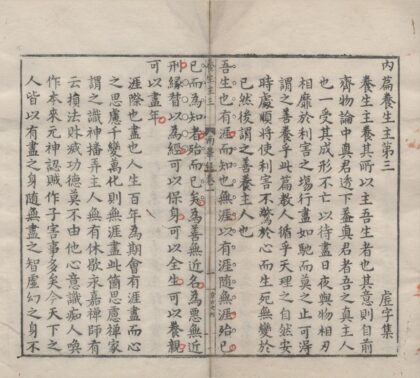 内篇養生主第三 虛字集
養生主養其所以主吾生者也其意則自前
齊物論中真君透下蓋真君者吾之真主人
也一受其成形不亡以待盡日夜與物相刃
相靡於利害之場行盡如馳而莫之止可淂
謂之善養乎此篇教人循乎天理之自然安
時處順將使利害不驚於心而生死無變於
已然後謂之善養主人也
吾生也有涯而知也無涯以有涯隨無涯殆已
已而為知者殆而已矣為善無近名為惡無近
刑緣督以為經可以保身可以全生可以養親
可以盡年
涯際也盡也人生百年為期會有涯盡而心
之思慮千變萬化則無涯盡此箇思慮禪家
謂之識神播弄主人無有休歇永嘉禪師有
云損法財滅功德莫不由他心意識痴人喚
作本來元神認賊作子害事多矣今天下之
人皆以有盡之身隨無盡之智虛幻之身不